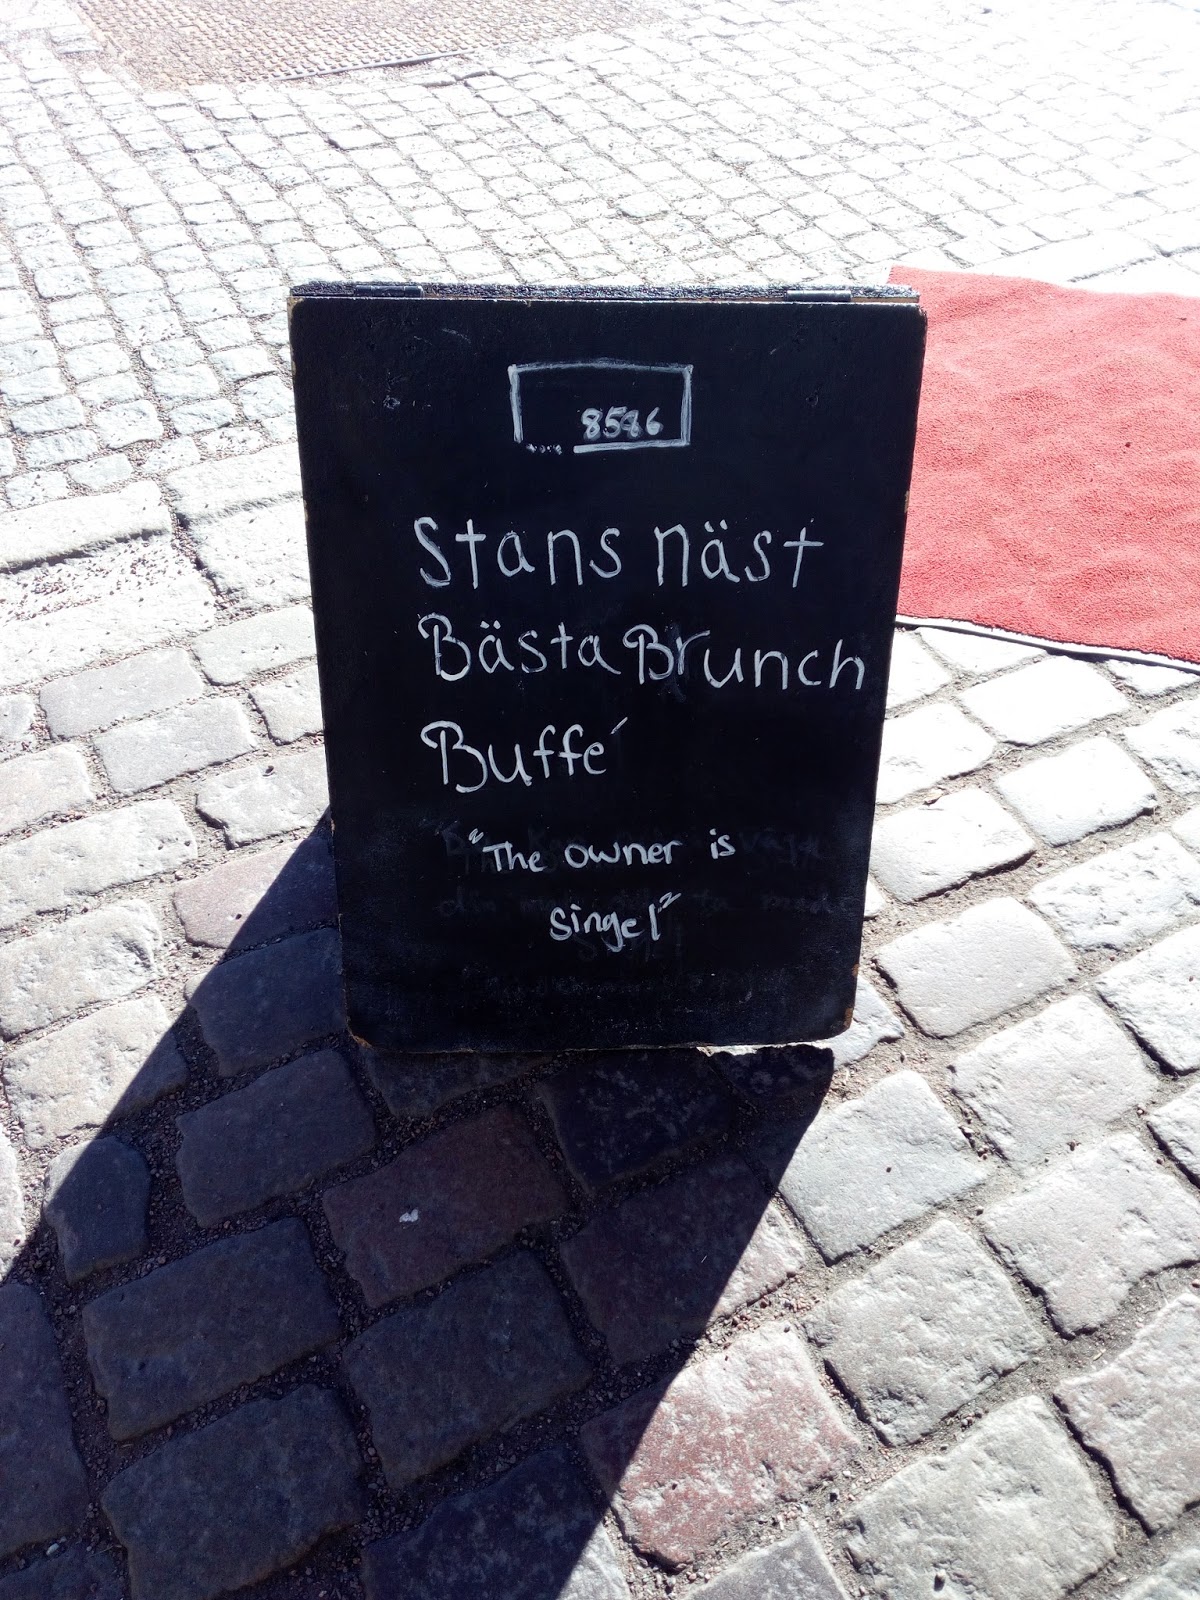 8586
Stans näst
Bästa Brunch
Buffé
"The owner is
Singel"